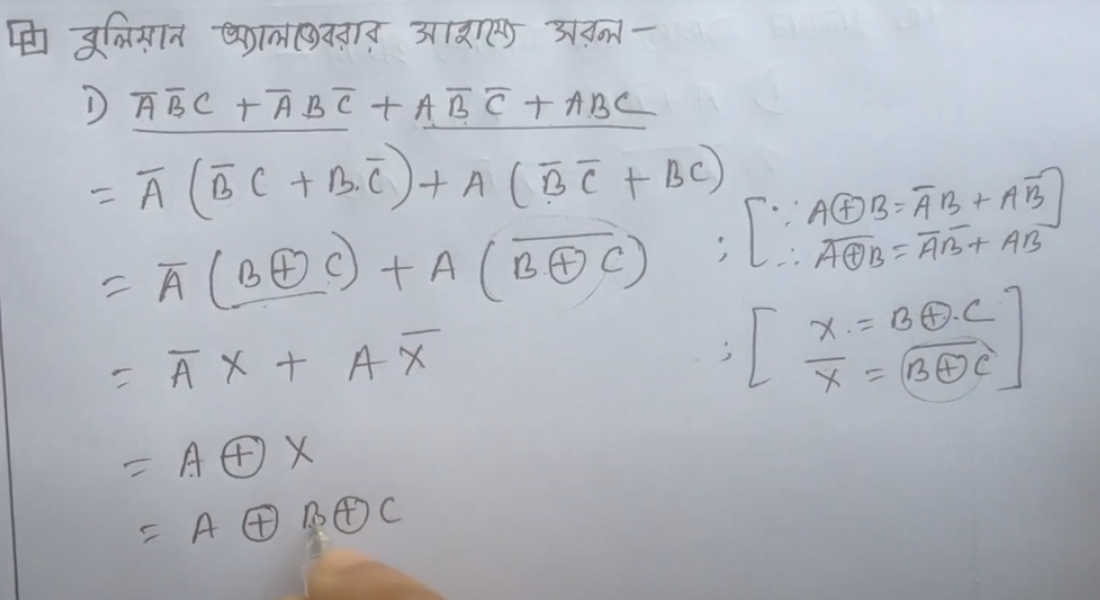 বুলিয়ান অ্যালজেবরার সাহায্যে সরল -
1) A̅B̅C + A̅BC̅ + AB̅C̅ + ABC
= A̅ (B̅C + B.C̅) + A (B̅C̅ + BC)
= A̅ (B⊕C) + A (\overline{B⊕C}) ; [∵ A⊕B = A̅B + AB̅]
∴ \overline{A⊕B} = A̅B̅ + AB
= A̅X + AX̅ ; [X = B⊕.C
X̅ = \overline{B⊕C}]
= A ⊕ X
= A ⊕ B⊕C